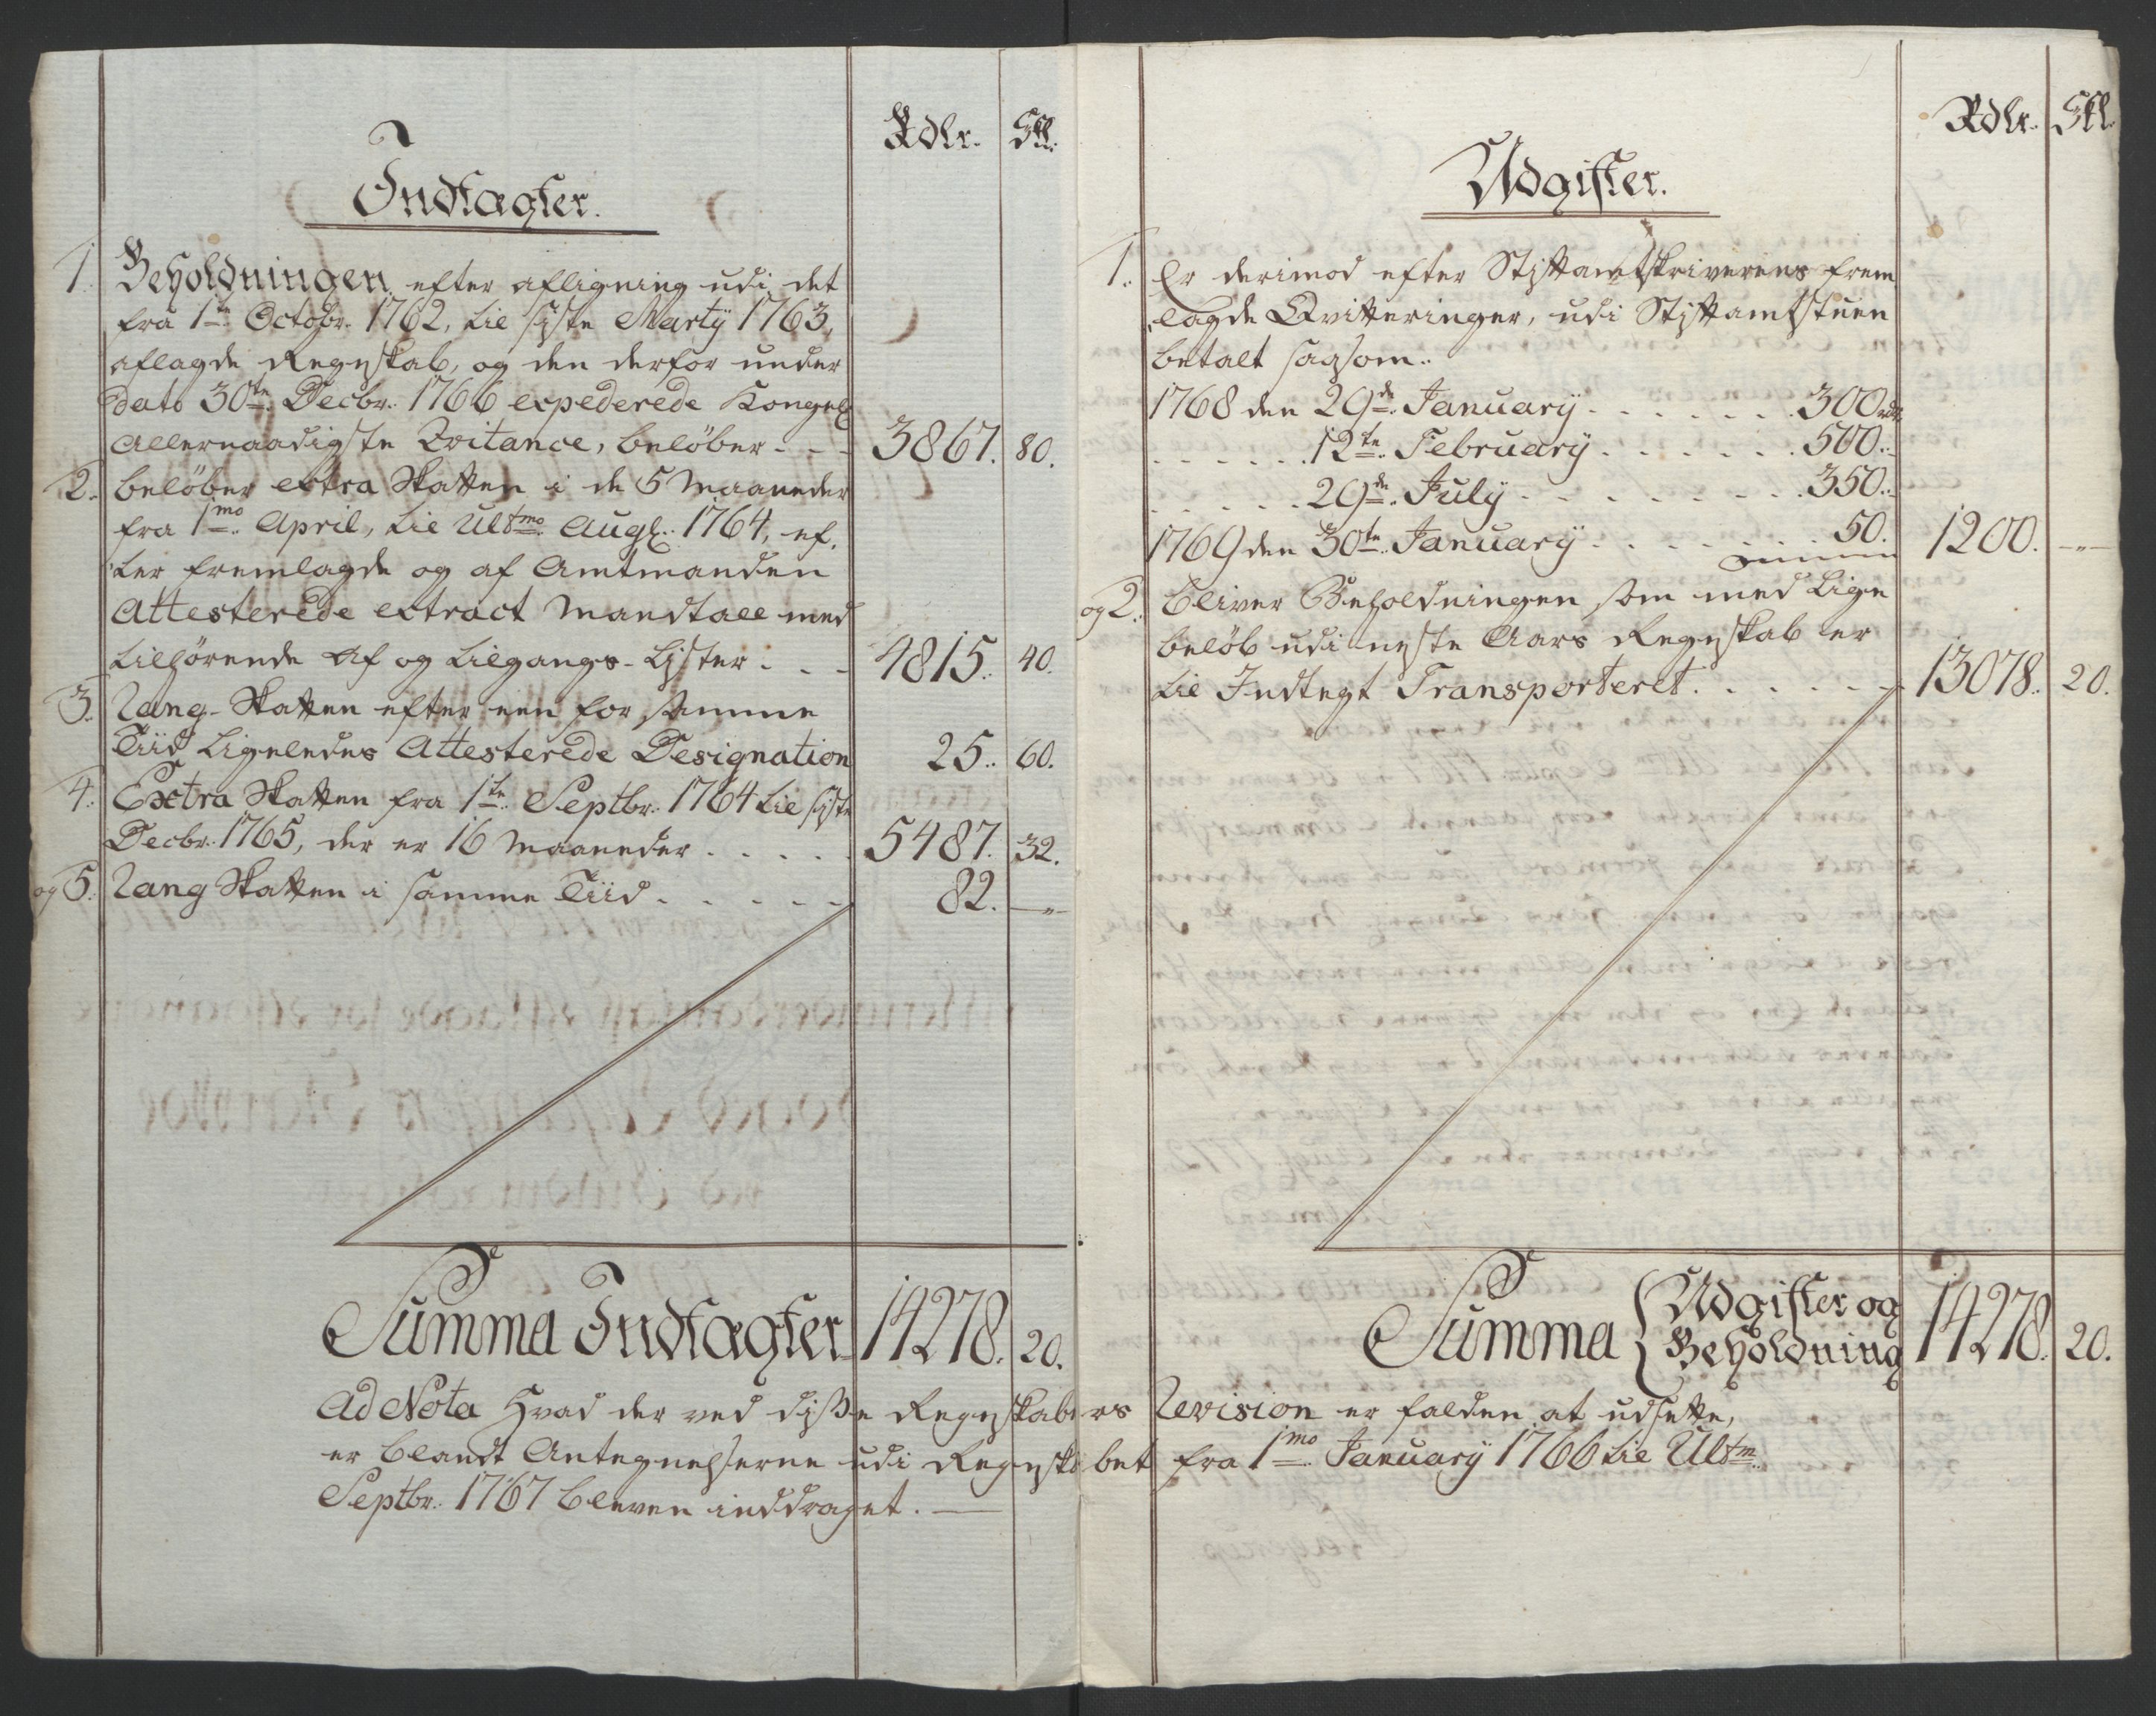 Rdlr. Skl.
Indtægter.
1. Beholdningen efter afligning udi det
fra 1te Octobr. 1762, til siste Marty 1763,
aflagde Regnskab, og den derfor under
Dato 30te Decbr. 1766 expederede Kongel
Allernaadigste Qvitance, beløber - - - 3867. 80.
2. beløber extra Skatten i de 5 Maaneder
fra 1mo April, til Ultmo Aug. 1764, ef,
ter fremlagde og af Amtmanden
Attesterede extract Mandtall med
tilhørende Af og tilgangs-Lister - - - 4815. 40.
3. Rang-Skatten efter een for samme
Tiid Ligeledes Attesterede Designation 25. 60.
4. Extra Skatten fra 1te Septbr. 1764 til siste
Decbr. 1765, der er 16 Maaneder . . . . . 5487. 32.
og 5. Rang Skatten i samme Tiid . - - - - 82. -"-
Summa Indtægter 14278. 20.
Rdlr. Skl.
Udgifter.
1. Er derimod efter Stiftamtskriverens frem
lagde Qvitteringer, udi Stiftamtstuen
betalt saasom.
1768 den 29de January - - - - - - 300 rdr
- - - - - 12te February - - - - - - 500.-
- - - - - 29de July - - - - - - - - 350.-
1769 den 30te January - - - - - - - 50. 1200. -"-
og 2. bliver Beholdningen som med Lige
beløb udi neste Aars Regnskab er
til Indtegt Transporteret. - - - - - 13078. 20.
Summa { Udgifter og
Beholdning 14278. 20.
Ad Nota Hvad der ved disse Regnskabers Revision er falden at udsette,
er blandt Antegnelserne udi Regnskabet fra 1mo January 1766 til Ultm
Septbr. 1767 bleven inddraget. —